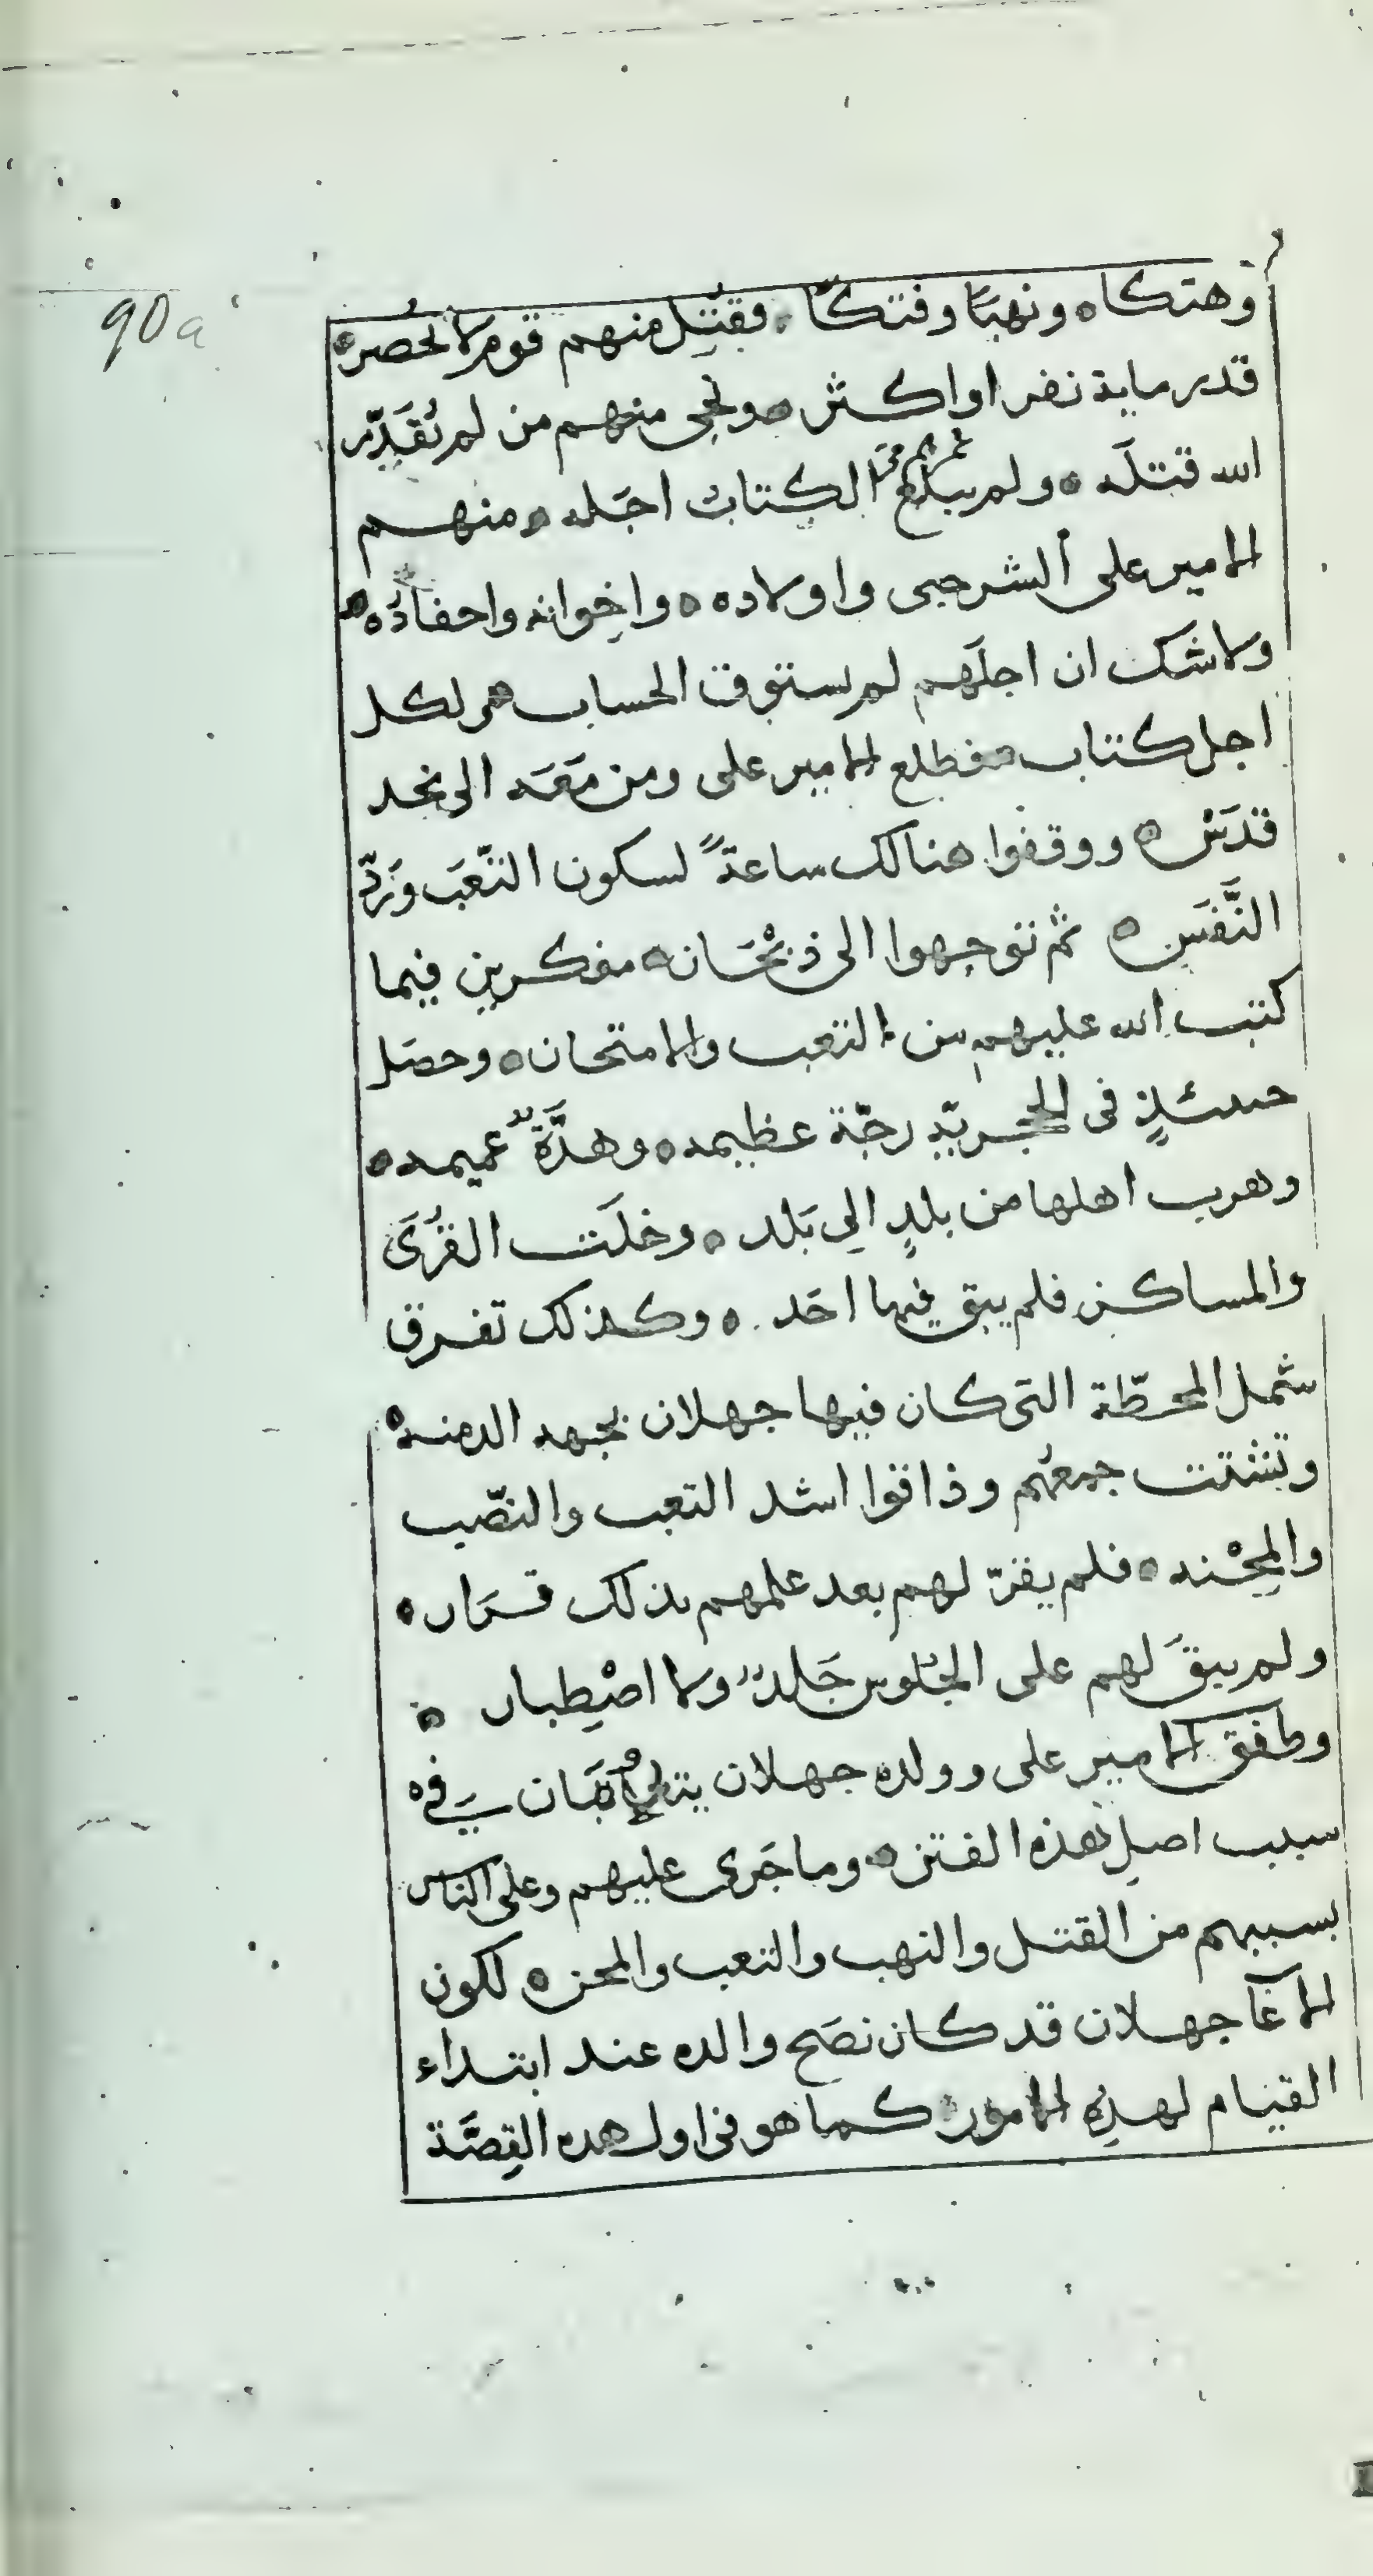 90a
وهتكا ونهبًا وفتكًا فقُتِل منهم قوم لا تحُصر
قدر ماية نفر او اكثر ونجى منهم من لم يُقَدِّر
الله قتلَه ولم يبلغ الكتاب اجَله منهم
الامير على الشرجبى واولاده واخِوانه واحفادُه
ولا شَك ان اجلَهم لم يستوف الحساب ولكل
اجل كتاب فطلع الامير على ومن مَعَه الى نجد
قدَسْ ووقفوا هنالك ساعةً لسكون التّعَب وَرَدّ
النَّفَس ثم توجهوا الى ذبْحَان مفكرين فيما
كتب الله عليهم من التعب والامتحان وحصَل
حينئذٍ فى الحجريّه رجّة عظيمه وهدَّةٌ عميمه
وهرب اهلها من بلدٍ الِى بَلد وخلَت القُرَى
والمساكن فلم يبق فيها احَد وكذلك تفرق
شمل المحطّة التى كان فيها جهلان بجهه الدمنه
وتشتت جمعُهم وذاقوا اشد التعب والنصّب
والمِحْنه فلم يقرّ لهم بعد علمهم بذلك قرَار
ولم يبقَ لهم على الجُلوس جَلدٌ ولا اصْطِبار
وطفق الامير على وولده جهلان فى
سبب اصلِ هذه الفتن وما جَرى عليهم وعلى الناس
بسببهم من القتل والنهب والتعب والمحن لكون
الآغا جهلان قد كان نصَح والده عند ابتداء
القيام لهذِه الامور كما هو فى اول هذه القِصَّة